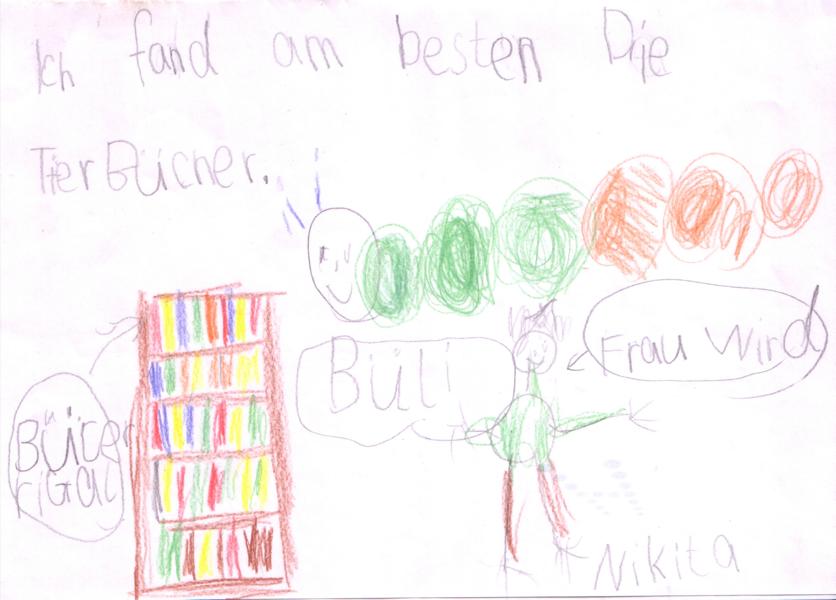 Ich fand am besten Die
TierBücher.
Büli
Frau Wird
Bücer
riGal
Nikita